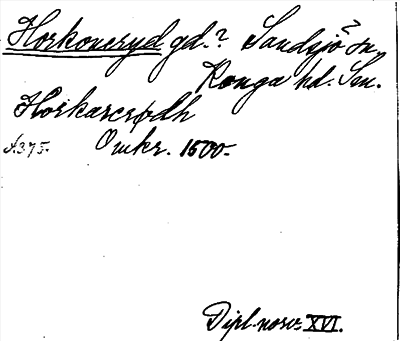 Horkoncryd gd.? Sandsjö? sn,
Konga hd. Sm.
Horkarcrødh
s. 375. Omkr. 1500.
Dipl. norv. XVI.